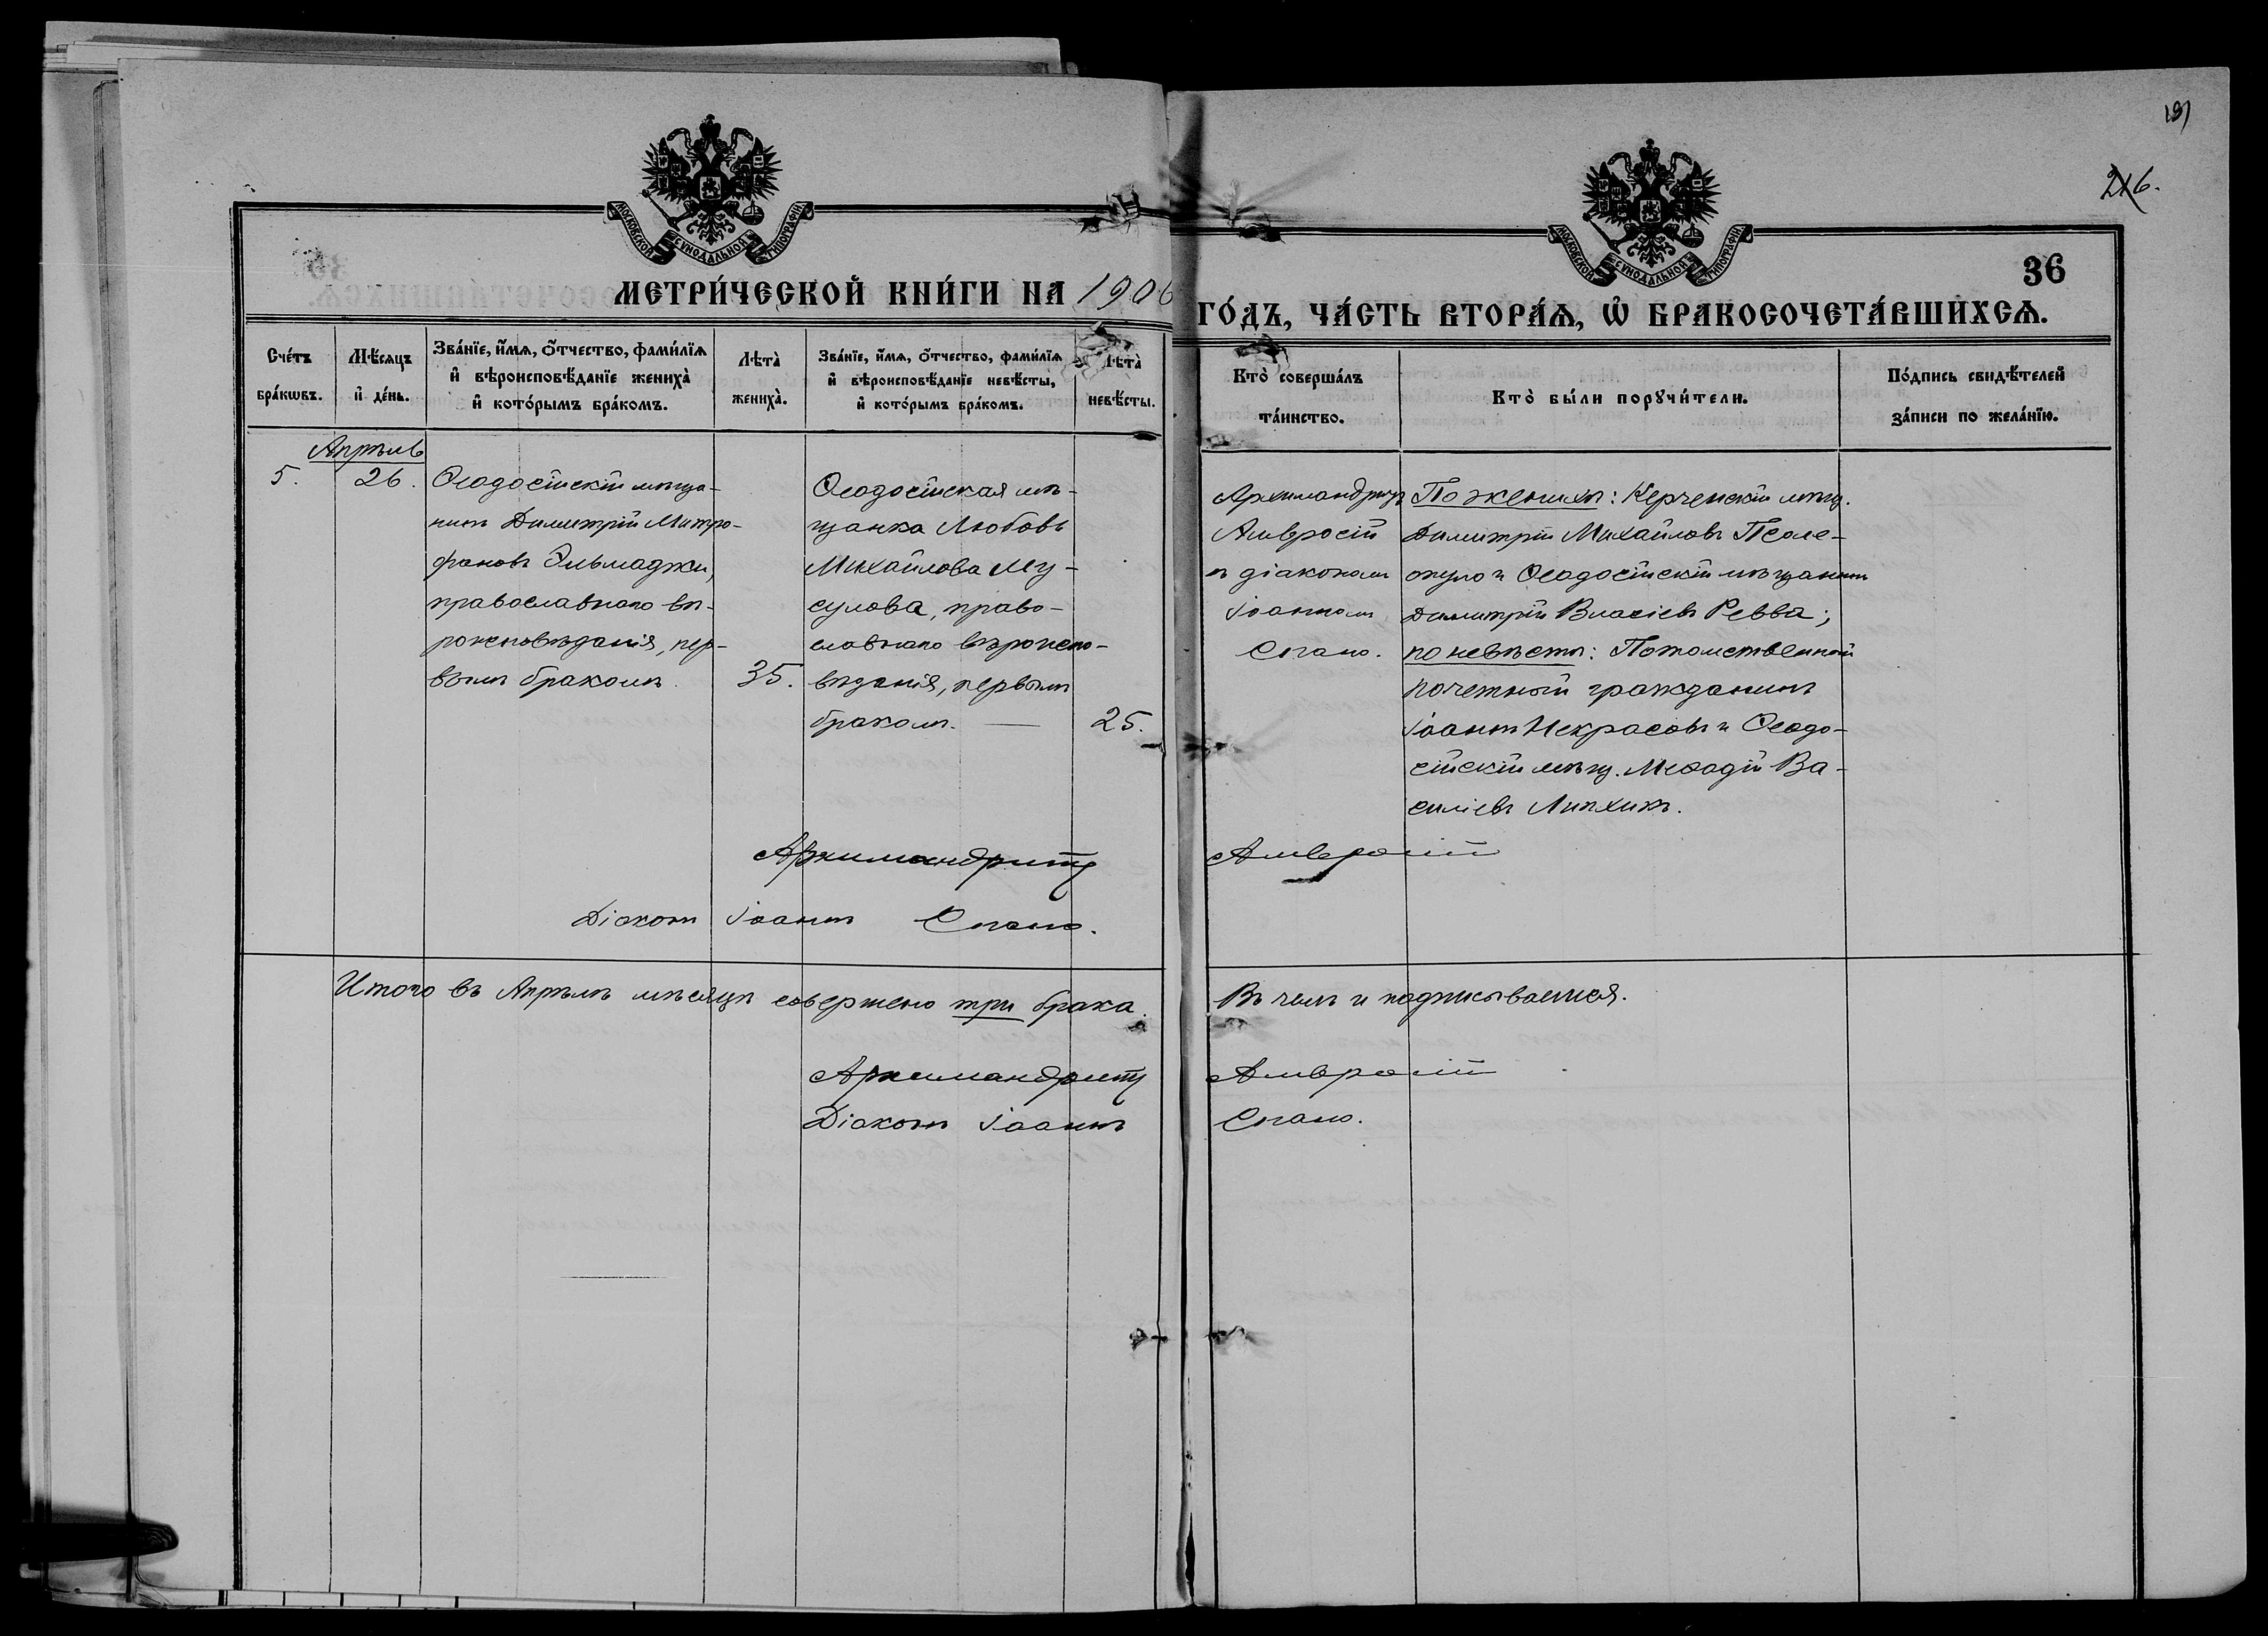 191
216.
36
МОСКОВСКОЙ СѴНОДАЛЬНОЙ ТИПОГРАФІИ
МОСКОВСКОЙ СѴНОДАЛЬНОЙ ТИПОГРАФІИ
МЕТРИ́ЧЕСКОЙ КНИ́ГИ НА 1906
ГО́ДЪ, ЧА́СТЬ ВТОРА́Ѧ, Ѡ҆ БРАКОСОЧЕТА́ВШИХСѦ.
Сче́тъ
бра́кѡвъ.
Мѣ́сяцъ
и҆ де́нь.
Зва́нїе, и҆́мѧ, ѻ҆́тчество, фами́лїѧ
и҆ вѣроисповѣ́данїе жениха̀
и҆ кото́рымъ бра́комъ.
Лѣта̀
жениха̀.
Зва́нїе, и҆́мѧ, ѻ҆́тчество, фами́лїѧ
и҆ вѣроисповѣ́данїе невѣ́сты,
и҆ кото́рымъ бра́комъ.
Лѣта̀
невѣ́сты.
Кто̀ соверша́лъ
та́инство.
Кто̀ бы́ли порꙋчи́тели.
По́дпись свидѣ́телей
за́писи по жела́нїю.
Апрѣль
5.
26.
Ѳеодосійскій мѣща-
нинъ Димитрій Митро-
фановъ Эльмаджи,
православнаго вѣ-
роисповѣданія, пер-
вымъ бракомъ.
35.
Ѳеодосійская мѣ-
щанка Любовь
Михайлова Му-
сулова, право-
славнаго вѣроиспо-
вѣданія, первымъ
бракомъ.
25.
Архимандритъ
Амвросій
съ діакономъ
Іоанномъ
Спано.
По женихѣ: Керченскій мѣщ.
Димитрій Михайловъ Псоле-
Ѳеодосійскій мѣщанинъ
Димитрій Власіевъ Ревва;
по невѣстѣ: Потомственный
почетный гражданинъ
Іоаннъ Некрасовъ и Ѳеодо-
сійскій мѣщ. Меѳодій Ва-
силіевъ Липхинъ.
Архимандритъ Амвросій
Діаконъ Іоаннъ Спано.
Итого въ Апрѣлѣ мѣсяцѣ совершено три брака. Въ чемъ и подписываемся.
Архимандритъ Амвросій
Діаконъ Іоаннъ Спано.